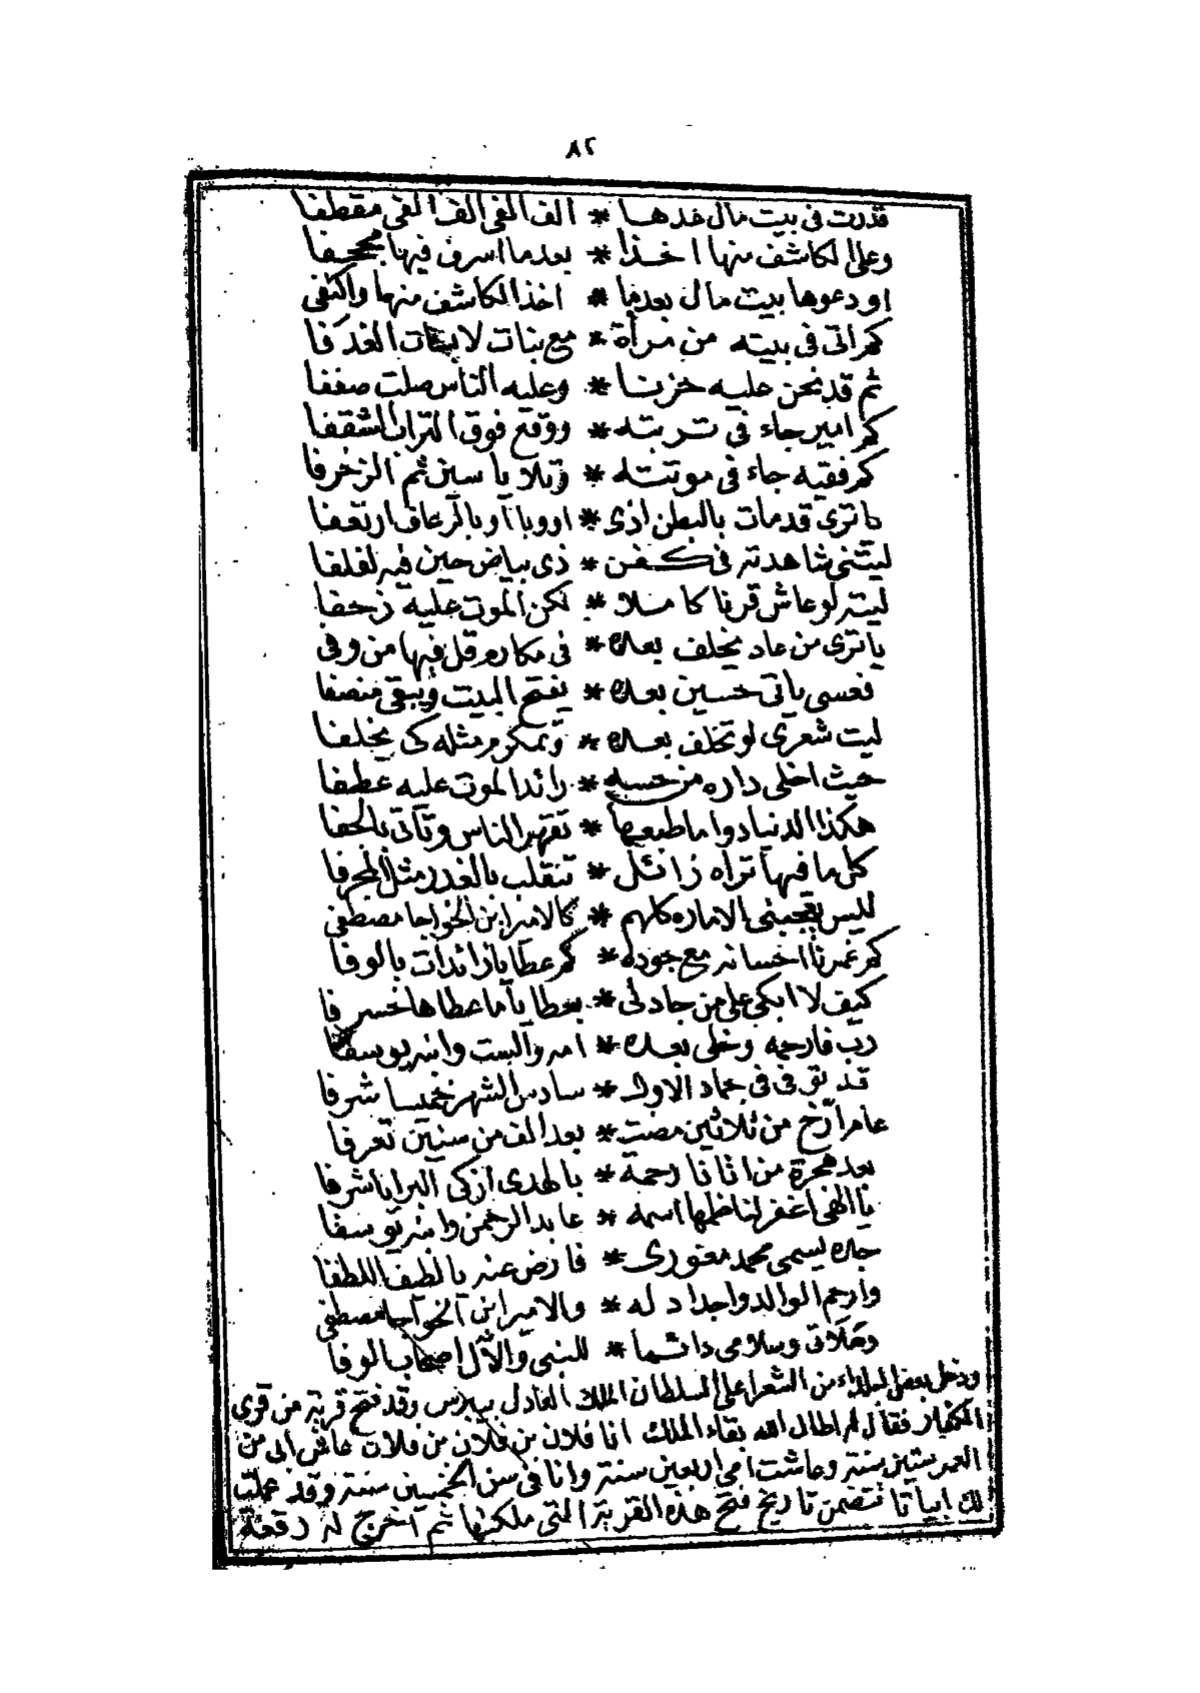 ٨٢
قدرت في بيت مال خدها * الف الفي الف الفي مقطفا
وعلى الكاشف منها اخذا * بعد ما اسرف فيها مجحفا
اودعوها بيت مال بعدما * اخذ الكاشف منها واكتفى
كم اتى في بيته من مرأة * مع بنات لابسات الغدفا
ثم قد نحن عليه حزنا * وعليه الناس صلت صففا
كم امير جاء في تربته * ووقع فوق التراب الشقفا
كم فقيه جاء في موتته * وتلا ياسين ثم الزخرفا
ما ترى قد مات بالبطن اذى * اروبا او بالرعاف ارتعفا
ليتني شاهدته في كفن * ذي بياض حين فيه لفلفا
ليته لو عاش قرنا كاملا * لكن الموت عليه زحفا
يا ترى من عاد يخلف بعده * في مكارم قل فيها من وفى
فعسى ياتي حسين بعده * يفتح البيت ويبقى منصفا
ليت شعري لو تخلف بعده * ويمكرم مثله كي يخلفا
حيث اخلى داره من حسبه * رائد الموت عليه عطفا
هكذا الدنيا دواما طبعها * تقهر الناس وتأتي بالجفا
كل ما فيها تراه زائل * تنقلب بالغدر مثل المجرفا
ليس يعجبني الاماره كلهم * كالامير ابن الخواجا مصطفى
كم غمرنا احسانه مع جوده * كم عطايا زائدات بالوفا
كيف لا ابكي على من جاد لي * بعطايا ما عطاها خسرفا
رب فارحمه وخلى بعده * امرو البست وابنه يوسفا
قد توفى في جماد الاول * سادس الشهر خميسا شرفا
عام ارخ من ثلاثين مضت * بعد الف من سنين تعرفا
بعد هجرة من اتانا رحمة * بالهدى ازكى البرايا شرفا
يا الهي اغفر لناظمها اسمه * عابد الرحمن وابنه يوسفا
جده يسمى محمد مغوري * فارض عنه يا لطيف اللطفا
وارحم الوالد واجداد له * والامير ابن الخواجا مصطفى
وصلاتي وسلامي دائما * للنبي والآل اصحاب الوفا
ودخل بعض من الشعرا على السلطان الملك العادل بيبرس وقد فتح قرية من قرى
الكفار فقال له اطال الله بقاء الملك انا فلان من فلان من فلان عاش ابي من
العمر ستين سنة وعاشت امي اربعين سنة وانا في سن الخمسين سنة وقد عملت
لك ابياتا تتضمن تاريخ فتح هذه القرية التي ملكتها ثم اخرج له رقعة